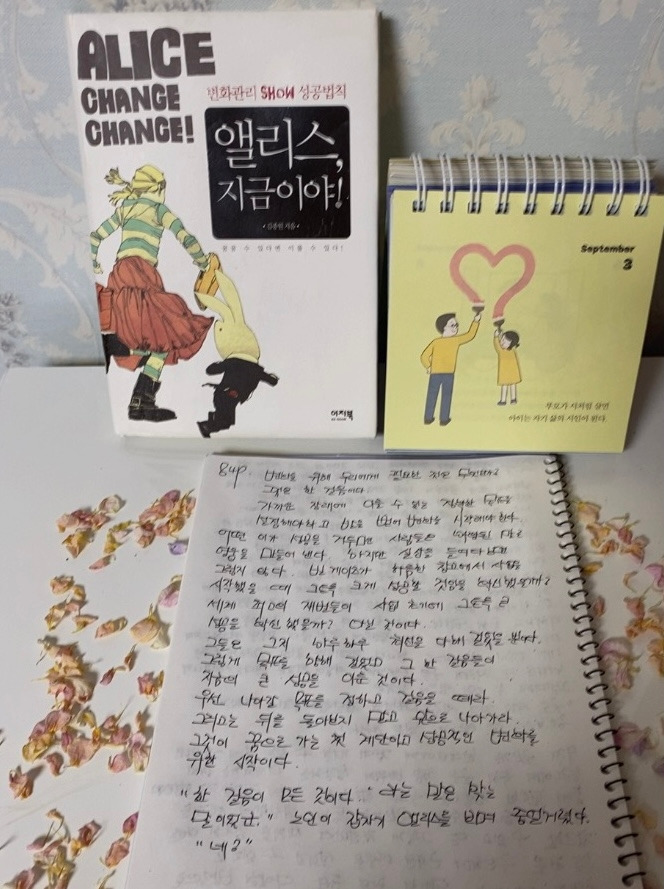 ALICE
CHANGE
CHANGE!
변화관리 SHOW 성공법칙
앨리스,
지금이야!
김종원 지음
꿈꿀 수 있다면 이룰 수 있다!
이지북
September
3
부모가 시처럼 살면
아이는 자기 삶의 시인이 된다.
84p. 변화를 위해 우리에게 필요한 것은 무엇일까?
그것은 한 걸음이다.
가까운 장래에 다룰 수 있는 정확한 목표를
설정해야하고 발을 뻗어 변화를 시작해야 한다.
어떤 이가 성공을 거두면 사람들은 말로
영웅을 만들어 낸다. 하지만 실상을 들여다보면
그렇지 않다. 빌게이츠가 허름한 창고에서 사업을
시작했을 때 그토록 크게 성공할 것임을 확신했을까?
세계 최고의 재벌들이 사업 초기에 그토록 큰
성공을 확신했을까? 아닐 것이다.
그들은 그저 하루하루 최선을 다해 걸음을 뗐다.
그렇게 목표를 향해 걸었고 그 한 걸음들이
지금의 큰 성공을 이룬 것이다.
우선 나다운 목표를 정하고 걸음을 떼라.
그리고는 뒤를 돌아보지 말고 앞으로 나아가라.
그것이 꿈으로 가는 첫 계단이고 성공적인 변화를
위한 시작이다.
"한 걸음이 모든 것이다.' 라는 말은 맞는
말이었군." 노인이 갑자기 앨리스를 보며 중얼거렸다.
"네?"